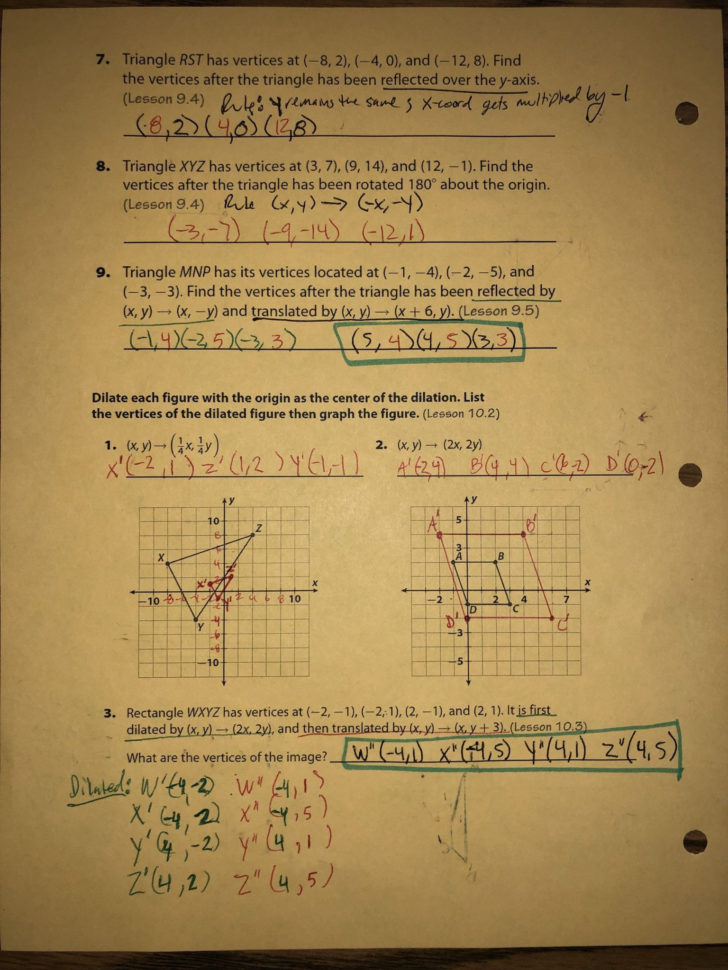 7. Triangle RST has vertices at (−8, 2), (−4, 0), and (−12, 8). Find
the vertices after the triangle has been reflected over the y-axis.
(Lesson 9.4) Rule: y remains the same & x-coord gets multiplied by -1
(8,2) (4,0) (12,8)
8. Triangle XYZ has vertices at (3, 7), (9, 14), and (12, −1). Find the
vertices after the triangle has been rotated 180° about the origin.
(Lesson 9.4) Rule (x,y) → (-x,-y)
(-3,-7) (-9,-14) (-12,1)
9. Triangle MNP has its vertices located at (−1, −4), (−2, −5), and
(−3, −3). Find the vertices after the triangle has been reflected by
(x, y) → (x, −y) and translated by (x, y) → (x + 6, y). (Lesson 9.5)
(-1,4)(-2,5)(-3,3) (5,4)(4,5)(3,3)
Dilate each figure with the origin as the center of the dilation. List
the vertices of the dilated figure then graph the figure. (Lesson 10.2)
1. (x, y) → (1/4x, 1/4y) 2. (x, y) → (2x, 2y)
X'(-2,1) Z'(1,2) Y'(-1,-1) A'(-2,4) B'(4,4) C'(6,-2) D'(0,-2)
y y
10 8 6 4 Z X X' Z' Y' x
−10 -8 2 4 6 8 10
Y -4 -6 -8 −10
A' 5 B' 3 A B x
−2 D 2 C 4 7
D' −3 C' −5
3. Rectangle WXYZ has vertices at (−2, −1), (−2, 1), (2, −1), and (2, 1). It is first
dilated by (x, y) → (2x, 2y), and then translated by (x, y) → (x, y + 3). (Lesson 10.3)
What are the vertices of the image? W"(-4,1) X"(-4,5) Y"(4,1) Z"(4,5)
Dilated: W'(-4,-2) W"(-4,1)
X'(-4,2) X"(-4,5)
Y'(4,-2) Y"(4,1)
Z'(4,2) Z"(4,5)